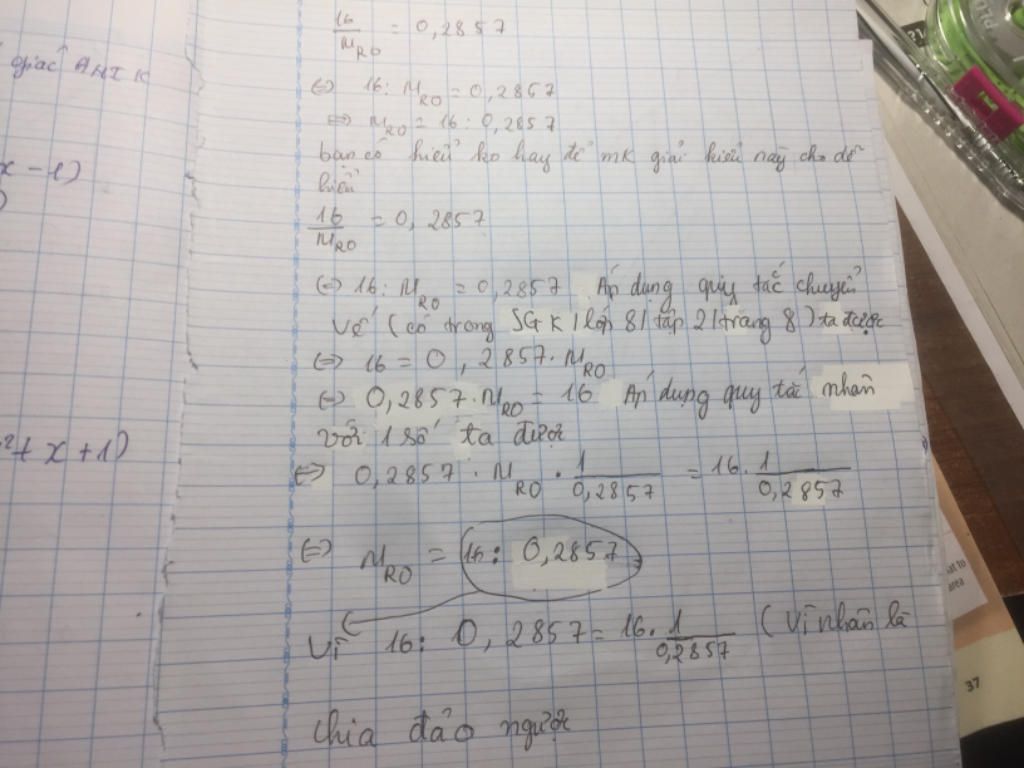 16/M_RO = 0,2857
giác AHIK
⇔ 16 : M_RO = 0,2857
⇔ M_RO = 16 : 0,2857
bạn có hiểu ko hay để mk giải kiểu này cho dễ
hiểu
x - 1)
16/M_RO = 0,2857
⇔ 16 : M_RO = 0,2857 Áp dụng quy tắc chuyển
vế (có trong SGK | lớp 8 | tập 2 | trang 8) ta được
⇔ 16 = 0,2857 . M_RO
⇔ 0,2857 . M_RO = 16 Áp dụng quy tắc nhân
với 1 số ta được
² + x + 1)
⇔ 0,2857 . M_RO . 1/0,2857 = 16 . 1/0,2857
⇔ M_RO = 16 : 0,2857
Vì 16 : 0,2857 = 16 . 1/0,2857 (Vì nhân là
chia đảo ngược
at to
area
37